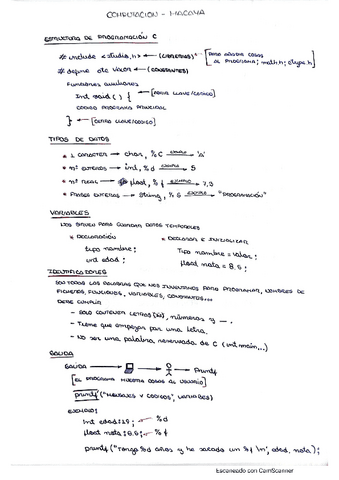 COMPUTACIÓN - MACANA
ESTRUCTURA DE PROGRAMACIÓN C
# include <stdio.h> → (LIBRERÍAS) → [PARA AÑADIR COSAS AL PROGRAMA; math.h; ctype.h]
# define cte valor → (CONSTANTES)
Funciones auxiliares
Int void () { → [ABRIR LLAVE/CÓDIGO]
CÓDIGO PROGRAMA PRINCIPAL
} → [CERRAR LLAVE/CÓDIGO]
TIPOS DE DATOS
• 1 CARACTER → char, %C → 'a'
• nº ENTEROS → int, %d → 5
• nº real → float, %f → 7,3
• FRASES ENTERAS → string, %S → "PROGRAMACIÓN"
VARIABLES
NOS SIRVEN PARA GUARDAR DATOS TEMPORALES
• DECLARACIÓN • DECLARAR E INICIALIZAR
tipo nombre; Tipo nombre = valor;
int edad; float nota = 8.5;
IDENTIFICADORES
SON TODAS LAS PALABRAS QUE NOS INVENTAMOS PARA PROGRAMAR, NOMBRES DE
FICHEROS, FUNCIONES, VARIABLES, CONSTANTES...
DEBE CUMPLIR
- SOLO CONTENER LETRAS, números y _.
- Tiene que empezar por una letra.
- NO SER una palabra reservada de C (int main...)
SALIDA
SALIDA → → Printf
[EL PROGRAMA MUESTRA COSAS AL USUARIO]
printf ("MENSAJES Y CODIGOS", VARIABLES)
EJEMPLO:
Int edad: 19; %d
float nota: 8.5; %f
printf ("Tengo %d años y he sacado un %f \n", edad, nota);
Escaneado con CamScanner